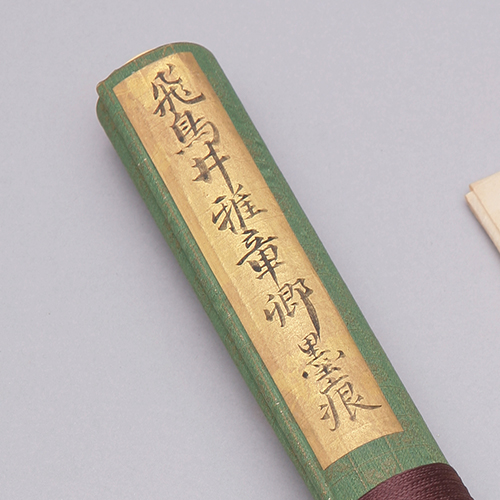 飛鳥井雅章卿墨痕